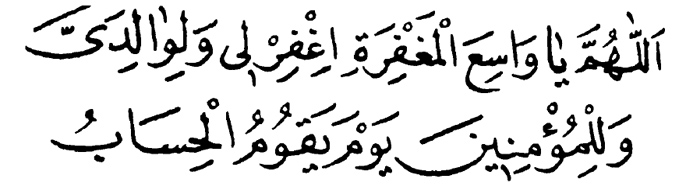 اَللّٰهُمَّ يَا وَاسِعَ الْمَغْفِرَةِ اِغْفِرْ لِى وَلِوَالِدَىَّ
وَلِلْمُؤْمِنِينَ يَوْمَ يَقُومُ الْحِسَابُ